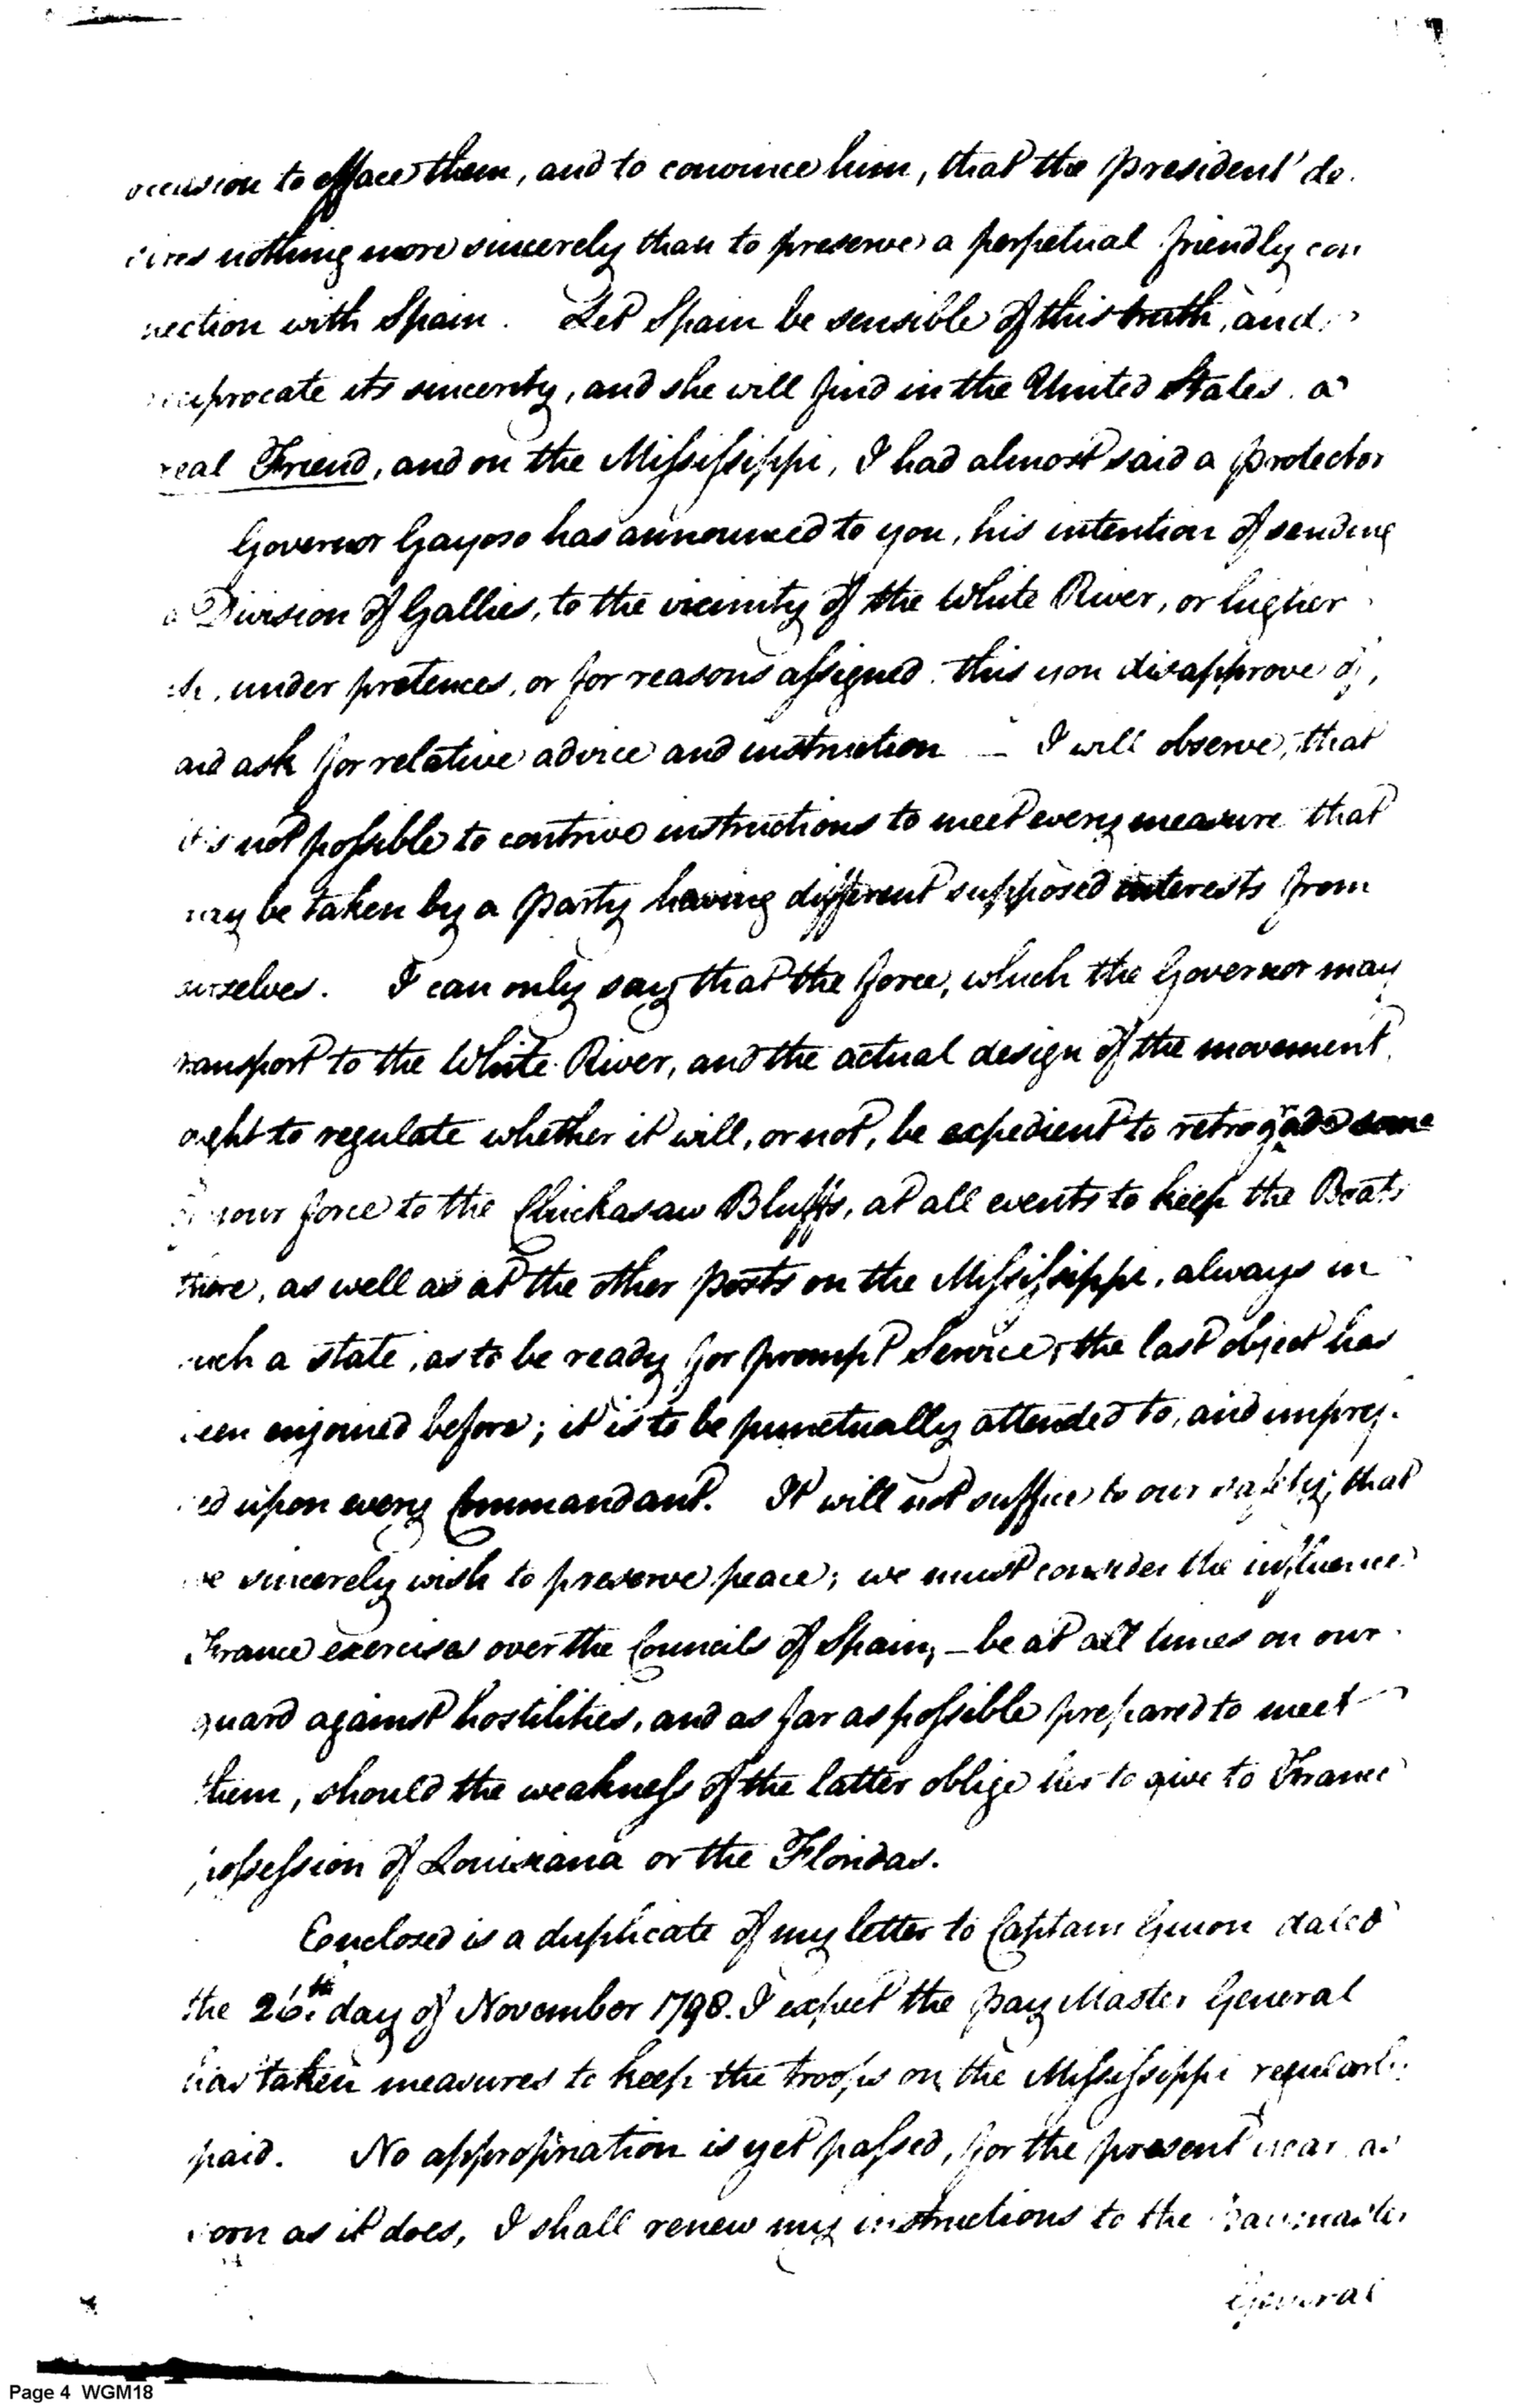 occasion to efface them, and to convince him, that the President de
sires nothing more sincerely than to preserve a perpetual friendly con
nection with Spain. Let Spain be sensible of this truth, and
reciprocate its sincerity, and she will find in the United States a
real Friend, and on the Mississippi, I had almost said a protector
Governor Gayoso has announced to you, his intention of sending
a Division of Gallies, to the vicinity of the White River, or higher
under pretences, or for reasons assigned. this you disapprove of,
and ask for relative advice and instruction — I will observe, that
it is not possible to contrive instructions to meet every measure that
may be taken by a party having different supposed interests from
ourselves. I can only say that the force, which the Governor may
transport to the White River, and the actual design of the movement,
ought to regulate whether it will, or not, be expedient to retrograde some
of your force to the Chickasaw Bluffs, at all events to keep the Boats
there, as well as at the other posts on the Mississippi, always in
such a state, as to be ready for prompt Service, the last object has
been enjoined before; it is to be punctually attended to, and impres-
sed upon every Commandant. It will not suffice to our safety, that
we sincerely wish to preserve peace; we must consider the influence
France exercises over the Councils of Spain, – be at all times on our
guard against hostilities, and as far as possible prepared to meet
them, should the weakness of the latter oblige her to give to France
possession of Louisiana or the Floridas.
Enclosed is a duplicate of my letter to Captain Guion dated
the 26th. day of November 1798. I expect the pay Master General
has taken measures to keep the troops on the Mississippi regularly
paid. No appropriation is yet passed, for the present year as
soon as it does, I shall renew my instructions to the Paymaster
General
Page 4 WGM18